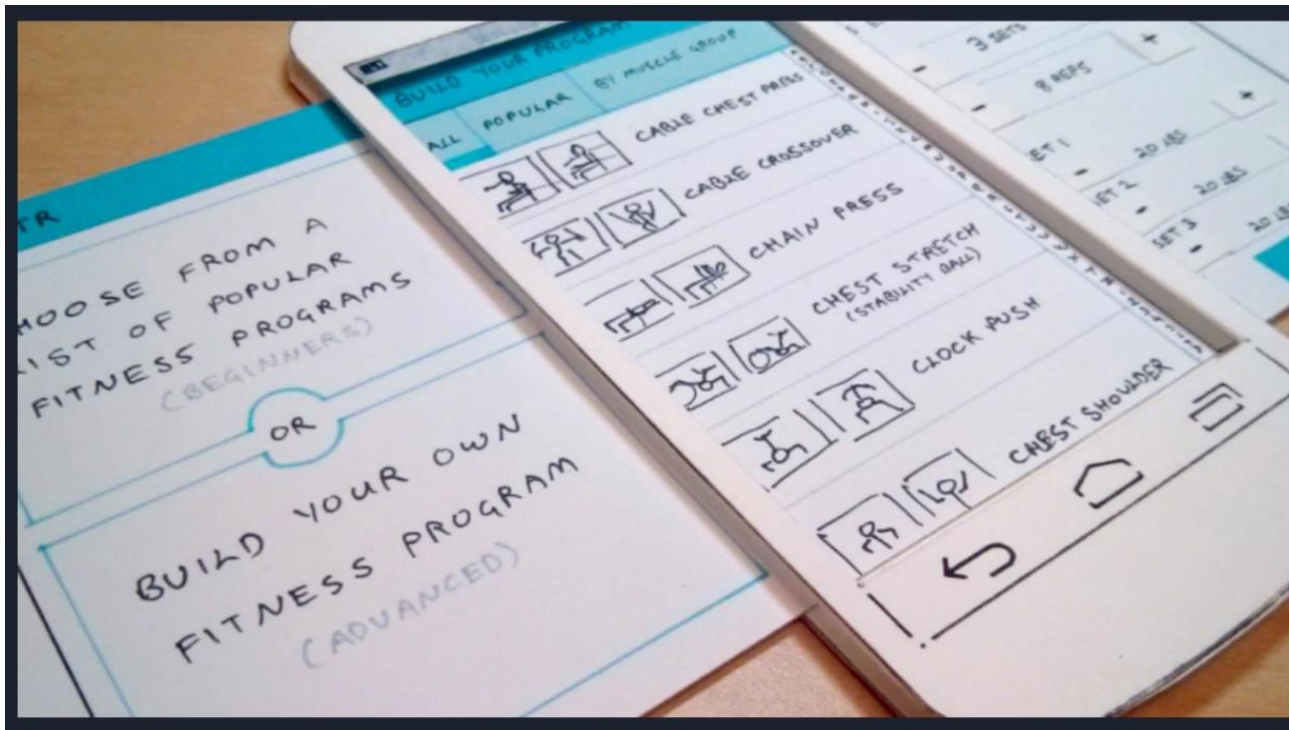 TR
HOOSE FROM A
IST OF POPULAR
FITNESS PROGRAMS
(BEGINNERS)
OR
BUILD YOUR OWN
FITNESS PROGRAM
(ADVANCED)
BUILD YOUR PROGRAM
ALL POPULAR BY MUSCLE GROUP
CABLE CHEST PRESS
CABLE CROSSOVER
CHAIN PRESS
CHEST STRETCH
(STABILITY BALL)
CLOCK PUSH
CHEST SHOULDER
3 SETS
- 8 REPS +
ET 1 - 20 LBS +
SET 2 - 20 LBS
SET 3 - 20 LBS